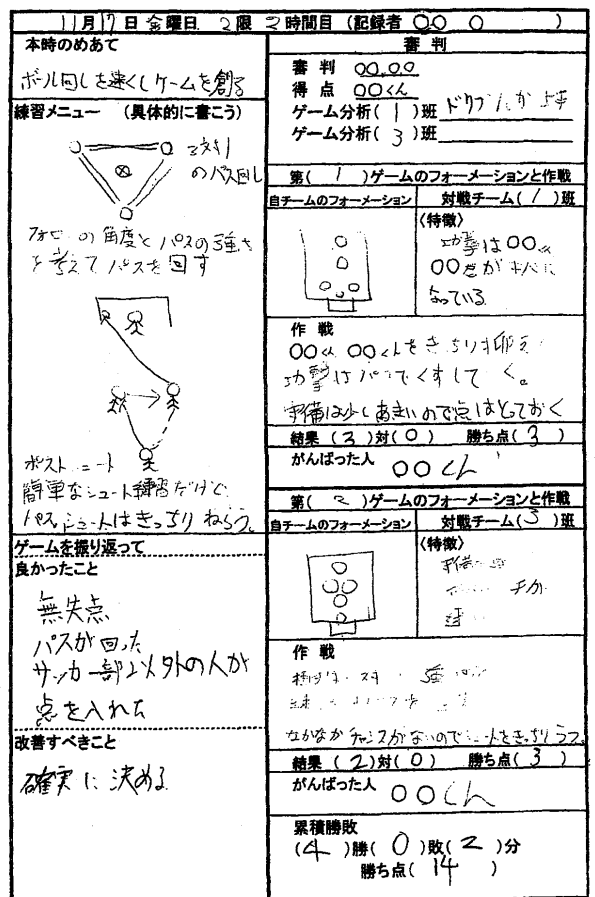 11月17日 金曜日 2限 2時間目 (記録者 〇〇 〇 )
本時のめあて
ボール回しを速くしゲームを創る
練習メニュー (具体的に書こう)
3対1
のパス回し
の角度とパスの強さ
を考えてパスを回す
ポストシュート
簡単なシュート練習だけど
パス、シュートはきっちりねらう。
ゲームを振り返って
良かったこと
無失点
パスが回った
サッカー部以外の人が
点を入れた
改善すべきこと
確実に決める
審判
審判 〇〇.〇〇
得点 〇〇くん
ゲーム分析( 1 )班
ゲーム分析( 3 )班
第( 1 )ゲームのフォーメーションと作戦
自チームのフォーメーション 対戦チーム( 1 )班
〈特徴〉
攻撃は〇〇くん
〇〇
なっている
作戦
〇〇くん 〇〇くんをきっちり抑え
攻撃はパスでくずして く。
守備は少しあまいので点はとっておく
結果( 3 )対( 0 ) 勝ち点( 3 )
がんばった人
〇〇くん
第( 2 )ゲームのフォーメーションと作戦
自チームのフォーメーション 対戦チーム( 3 )班
〈特徴〉
守備
作戦
なかなかチャンスがないのでシュートをきっちりうつ。
結果( 2 )対( 0 ) 勝ち点( 3 )
がんばった人
〇〇くん
累積勝敗
( 4 )勝( 0 )敗( 2 )分
勝ち点( 14 )